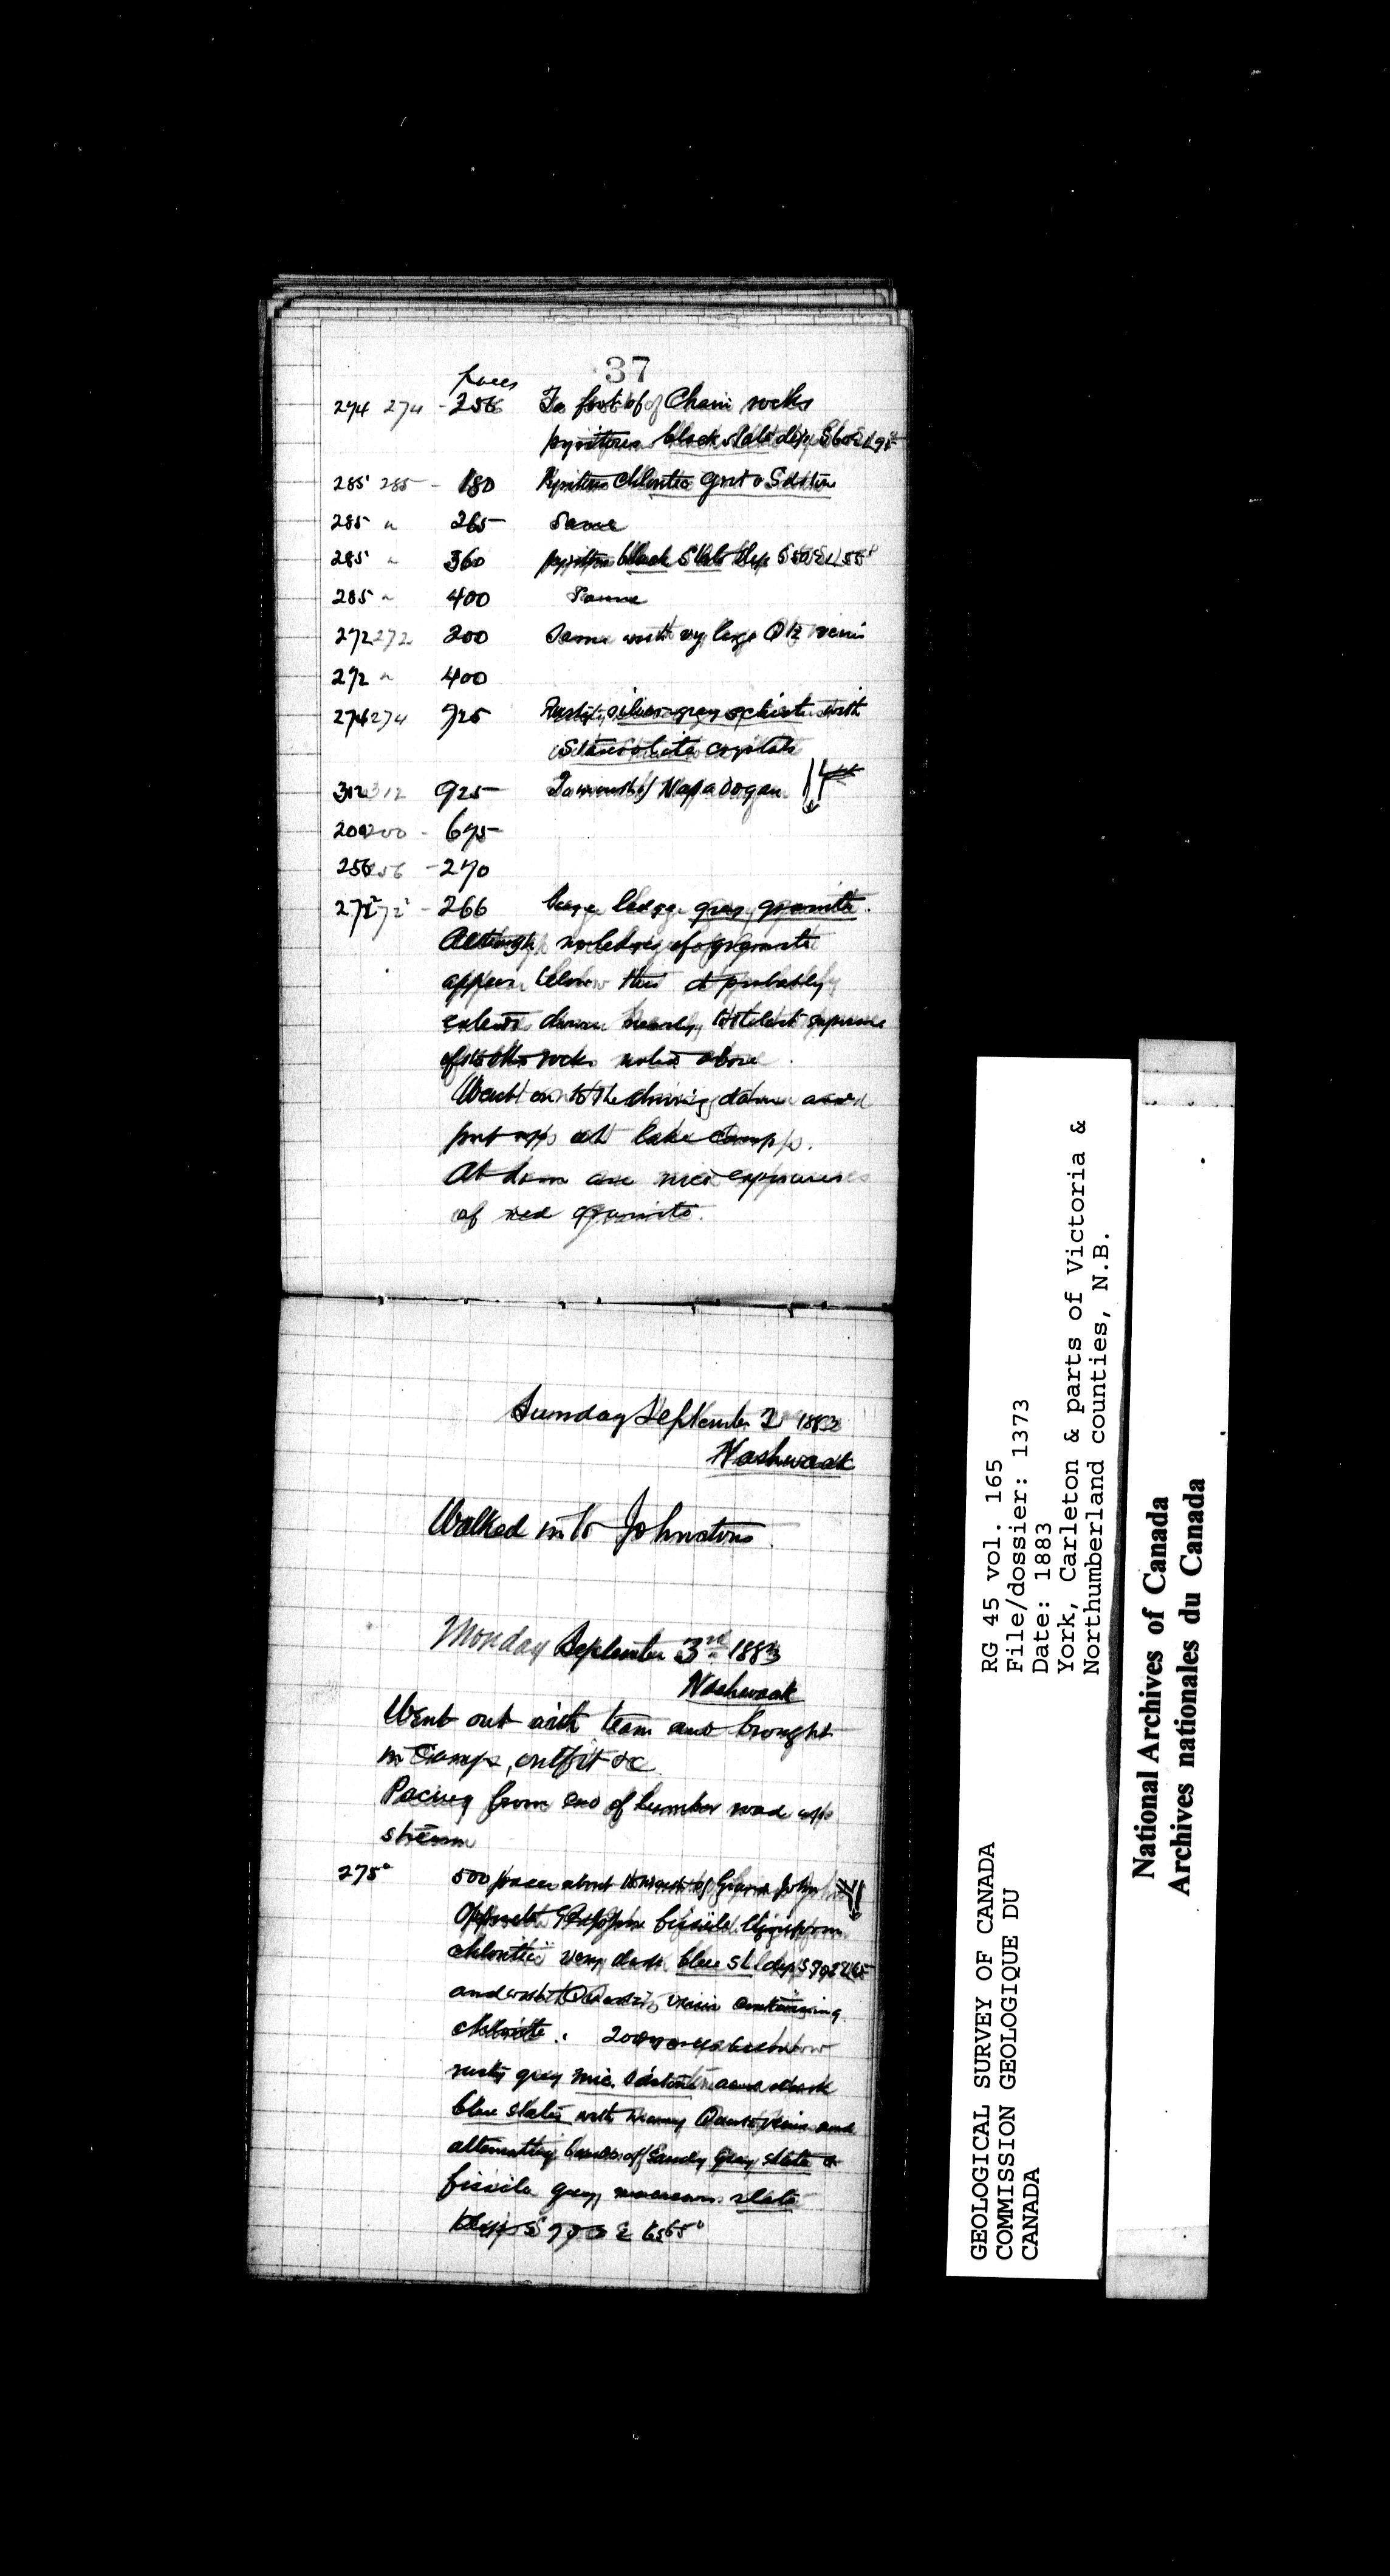 37
paces
274 274 - 256 To foot of Chain rocks
pyritous black slate dip S60E L 75°
285 285 - 180 Pyritous Chloritic grit & Sdstone
285 " 265 Same
285 " 360 pyritous black Slate dip S50E L 55°
285 " 400 Same
272 272 200 Same with vy large Qtz veins
272 " 400
274 274 925 Rusty silver grey schist with
Staurolite crystals
312 312 925 To mouth of Napadogan
200 200 - 675
256 256 - 270
272 272 - 266 large ledge gray granite.
Although no ledges of granite
appear below this it probably
extends down nearly to the last exposure
of the other rocks noted above
Went on to the driving dam and
put up at lake Camp.
At dam are nice exposures
of red granite.
Sunday September 2 1883
Nashwaak
Walked in to Johnstons
Monday September 3rd 1883
Nashwaak
Went out with team and brought
in Camp, outfit &c
Pacing from end of lumber road up
stream
275° 500 paces about to mouth of Grand John
Opposite fissile
chloritic very dark blue sl dip S 70 E 65
and with Quartz veins containing
chlorite. 200 paces below
rusty grey mic. Sdstone and dark
blue slates with many Quartz veins and
alternating bands of Sandy Gray slate &
fissile grey slate
Dip S 70 E 65°
RG 45 vol. 165
File/dossier: 1373
Date: 1883
York, Carleton & parts of Victoria &
Northumberland counties, N.B.
GEOLOGICAL SURVEY OF CANADA
COMMISSION GEOLOGIQUE DU
CANADA
National Archives of Canada
Archives nationales du Canada